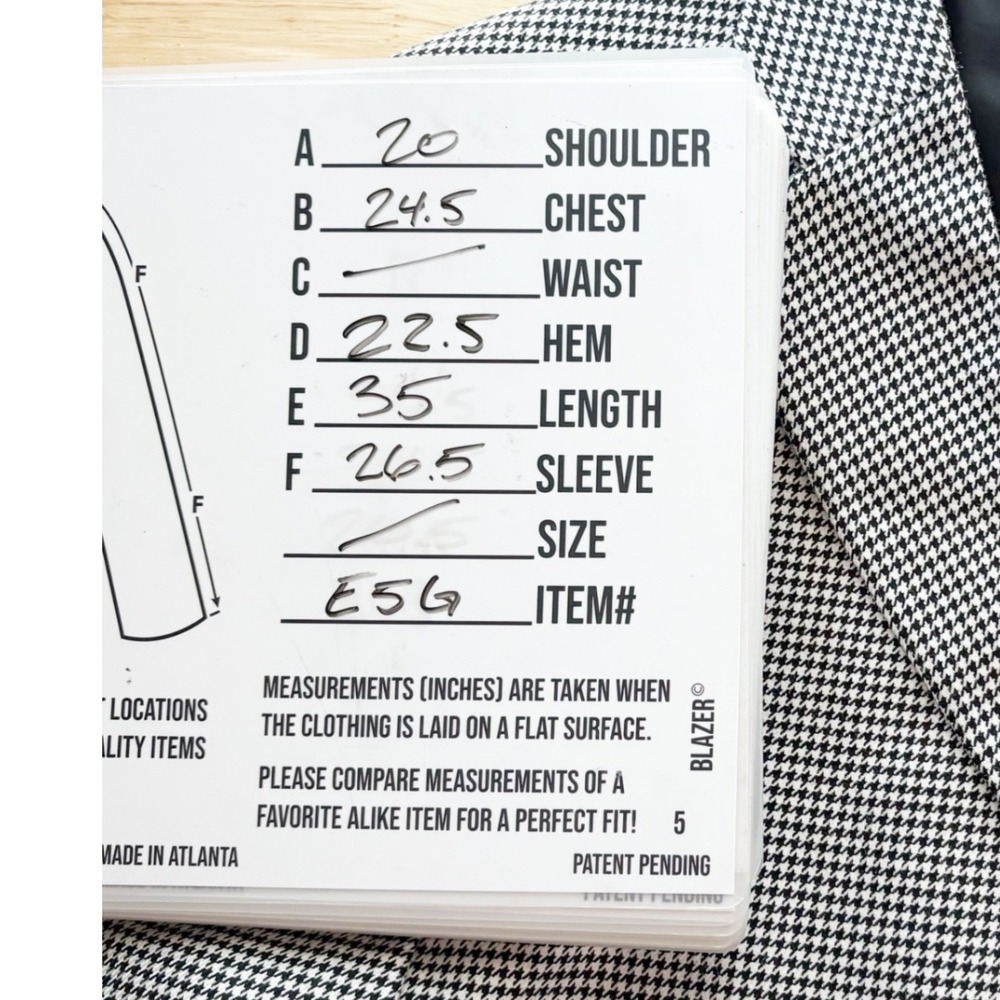 A 20 SHOULDER
B 24.5 CHEST
C WAIST
D 22.5 HEM
E 35 LENGTH
F 26.5 SLEEVE
SIZE
E5G ITEM#
F
F
LOCATIONS
ITEMS
MEASUREMENTS (INCHES) ARE TAKEN WHEN
THE CLOTHING IS LAID ON A FLAT SURFACE.
PLEASE COMPARE MEASUREMENTS OF A
FAVORITE ALIKE ITEM FOR A PERFECT FIT! 5
BLAZER©
MADE IN ATLANTA
PATENT PENDING
PATENT PENDING